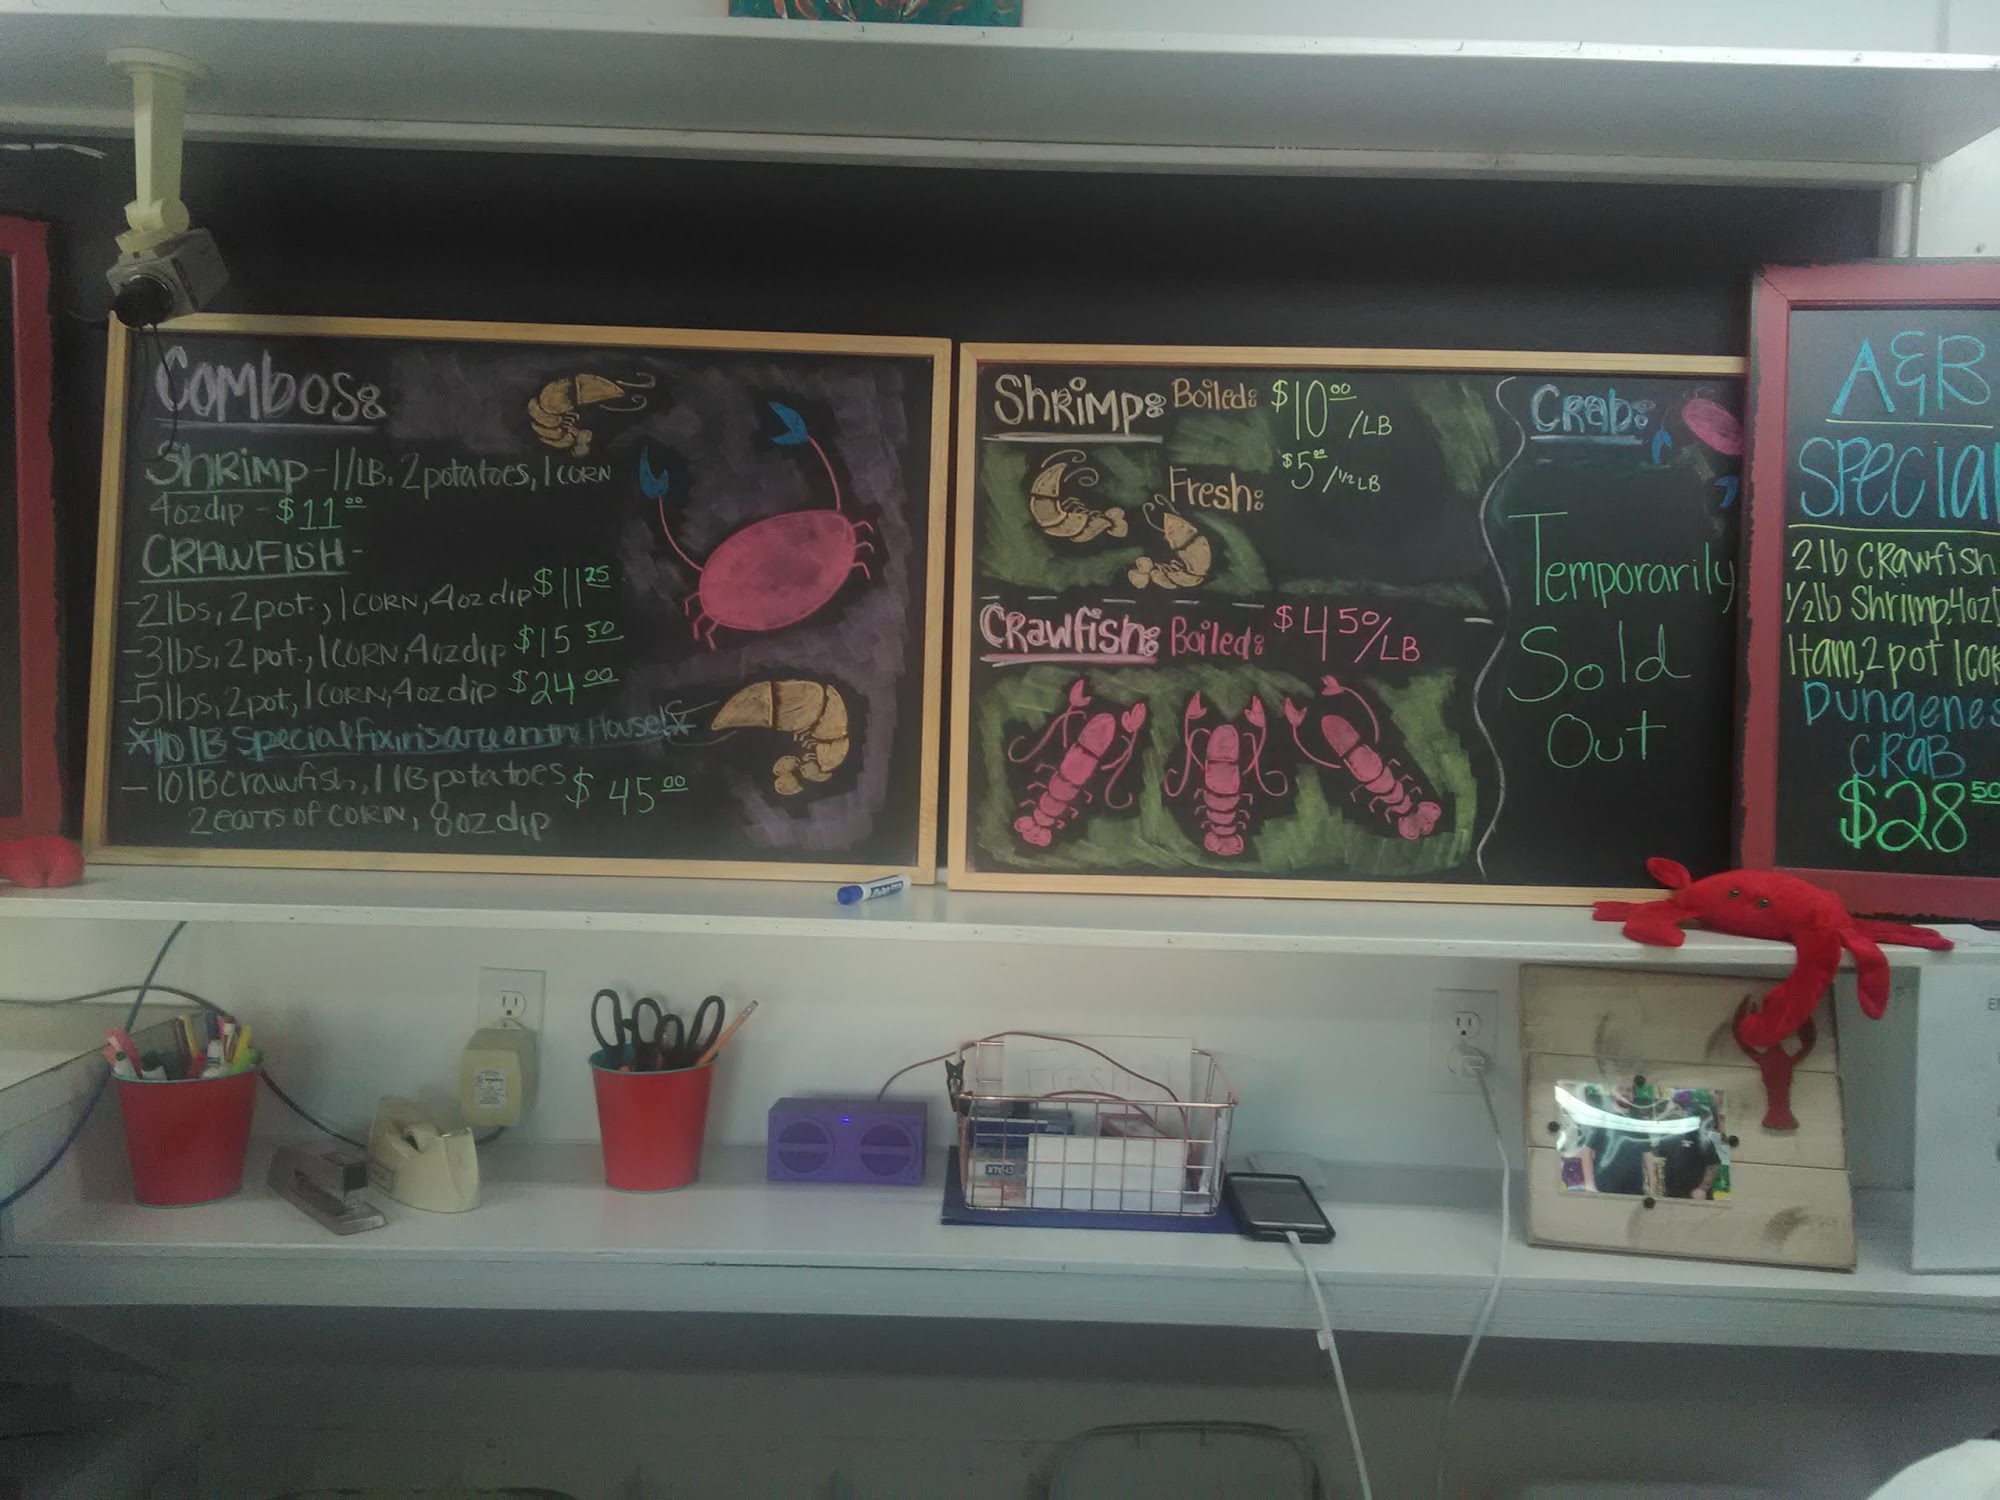 Combos:
Shrimp - 1/LB. 2 potatoes, 1 CORN
4oz dip - $11.00
CRAWFISH -
- 2lbs, 2 pot., 1 CORN, 4oz dip $11.25
- 3lbs, 2 pot., 1 CORN, 4oz dip $15.50
- 5lbs, 2 pot, 1 CORN, 4oz dip $24.00
*10 LB Special fixins are on the House!*
- 10 LB crawfish, 1 LB potatoes $45.00
2 ears of CORN, 8oz dip
Shrimp: Boiled: $10.00/LB
$5.00/1/2 LB
Fresh:
Crawfish: Boiled: $4.50/LB
Crab:
Temporarily
Sold
Out
A&B
Special
2 lb Crawfish
1/2 lb Shrimp, 4oz
1 tam, 2 pot 1 cor
Dungenes
CRAB
$28.50
Fresh
CHALK